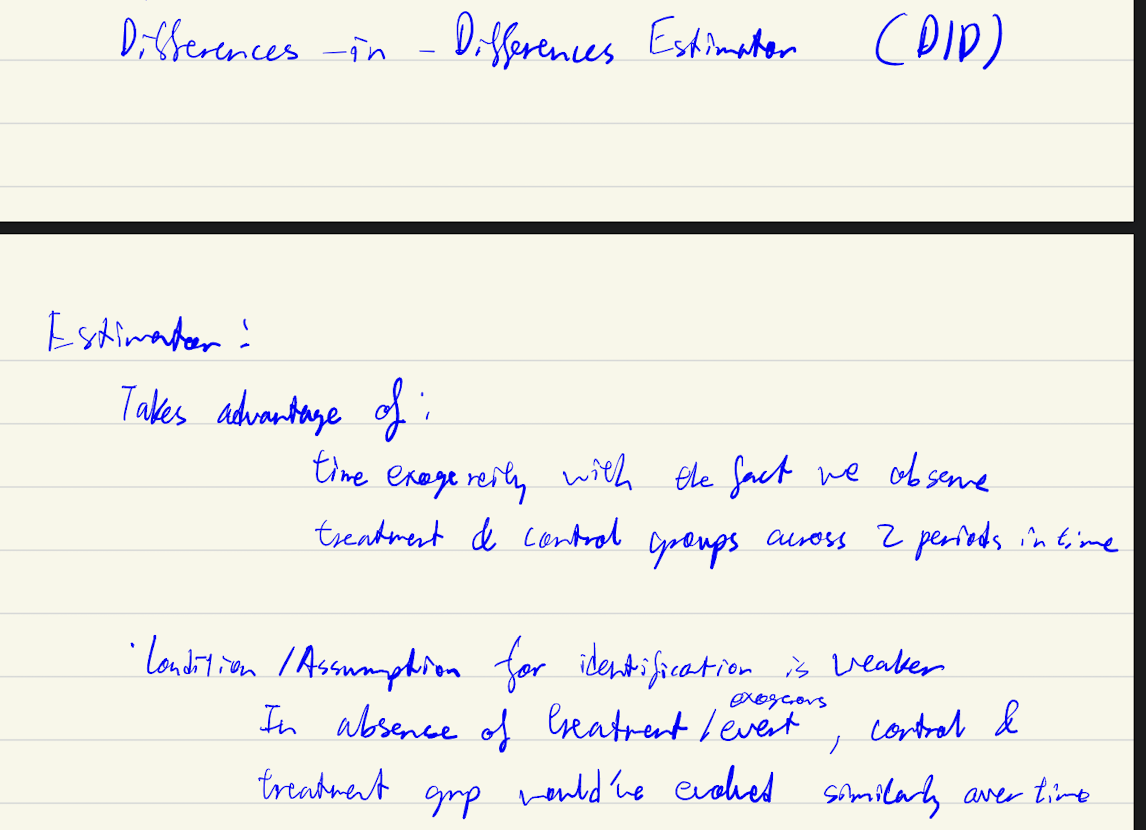 Differences - in - Differences Estimator (DID)
Estimator :
Takes advantage of :
time exogeneity with the fact we observe
treatment & control groups across 2 periods in time
· Condition / Assumption for identification is weaker
exogenous
In absence of treatment / event , control &
treatment grp would've evolved similarly over time